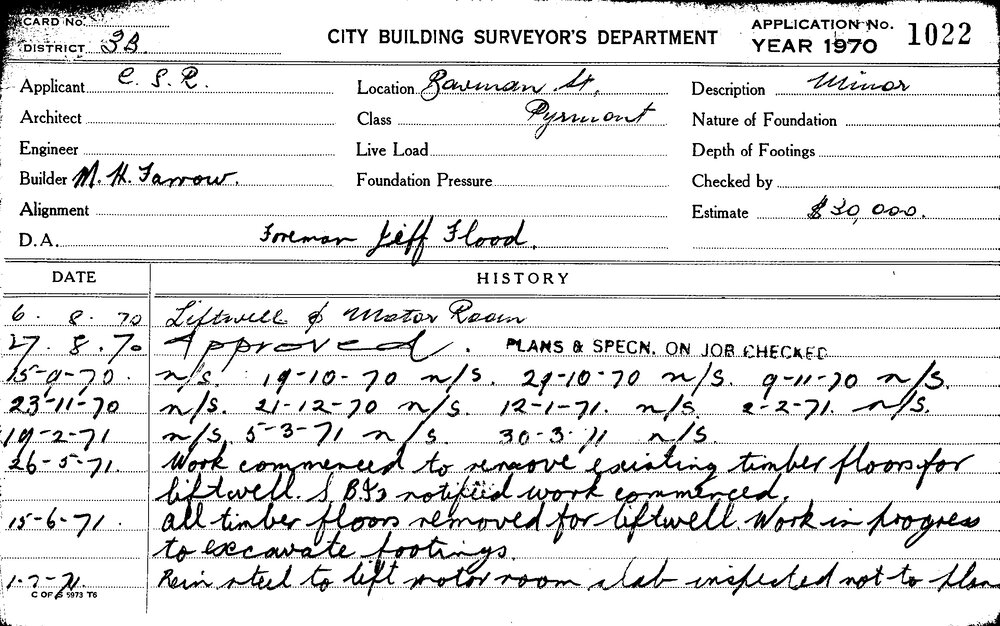 CARD No.
DISTRICT 3B
CITY BUILDING SURVEYOR'S DEPARTMENT
APPLICATION No. 1022
YEAR 1970
Applicant C. S. R. Location Bowman St, Description Minor
Architect Class Pyrmont Nature of Foundation
Engineer Live Load Depth of Footings
Builder M. H. Farrow. Foundation Pressure Checked by
Alignment Estimate $30,000.
D.A. Foreman Jeff Flood.
DATE HISTORY
6. 8. 70 Liftwell & Motor Room
27. 8. 70 Approved. PLANS & SPECN. ON JOB CHECKED
15-9-70. n/s. 19-10-70 n/s. 29-10-70 n/s. 9-11-70 n/s.
23-11-70 n/s. 21-12-70 n/s. 12-1-71. n/s. 2-2-71. n/s.
19-2-71 n/s, 5-3-71 n/s. 30-3-71 n/s.
26-5-71. Work commenced to remove existing timber floors for
liftwell. notified work commenced.
15-6-71. All timber floors removed for liftwell Work in progress
to excavate footings.
1-7-71. Rein steel to lift motor room slab inspected not to plan
C OF S 5973 T6